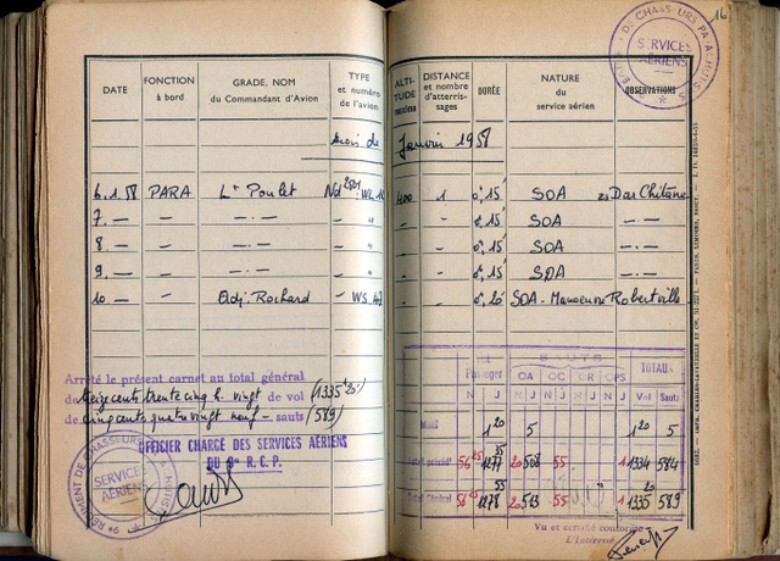 16
RÉGIMENT DE CHASSEURS PARACHUTISTES
SERVICES
AÉRIENS
DATE FONCTION à bord GRADE, NOM du Commandant d'Avion TYPE et numéro de l'avion ALTITUDE maxima DISTANCE et nombre d'atterrissages DURÉE NATURE du service aérien OBSERVATIONS
Mois de Janvier 1958
6.1.58 PARA Lt Poulet Nd 2501 400 1 0h,15' SOA Dar Chitane
7. — — —.— — " - - 0h,15' SOA —.—
8 — — —.— — " - - 0h,15' SOA —.—
9. — — —.— — " - - 0h,15' SOA —.—
10. — — Adj. Rochard — WS - - 0h,20' SOA - Manoeuvre Robertville
Arrêté le présent carnet au total général
de treize cents trente cinq h. vingt de vol (1335h20')
de cinq cents quatre vingt neuf — sauts (589)
OFFICIER CHARGÉ DES SERVICES AÉRIENS
DU 9e R.C.P.
9e RÉGIMENT DE CHASSEURS PARACHUTISTES
SERVICES
AÉRIENS
SAUTS
Passager OA OC OR OPS TOTAUX
N J N J N J N J N J Vol Sauts
Mois 1 20 5 1 20 5
Total précédt 56 25 1277 35 20 508 55 1 1334 584
Total Général 56 25 1278 55 20 513 55 1 1335 20 589
Vu et certifié conforme
L'Intéressé